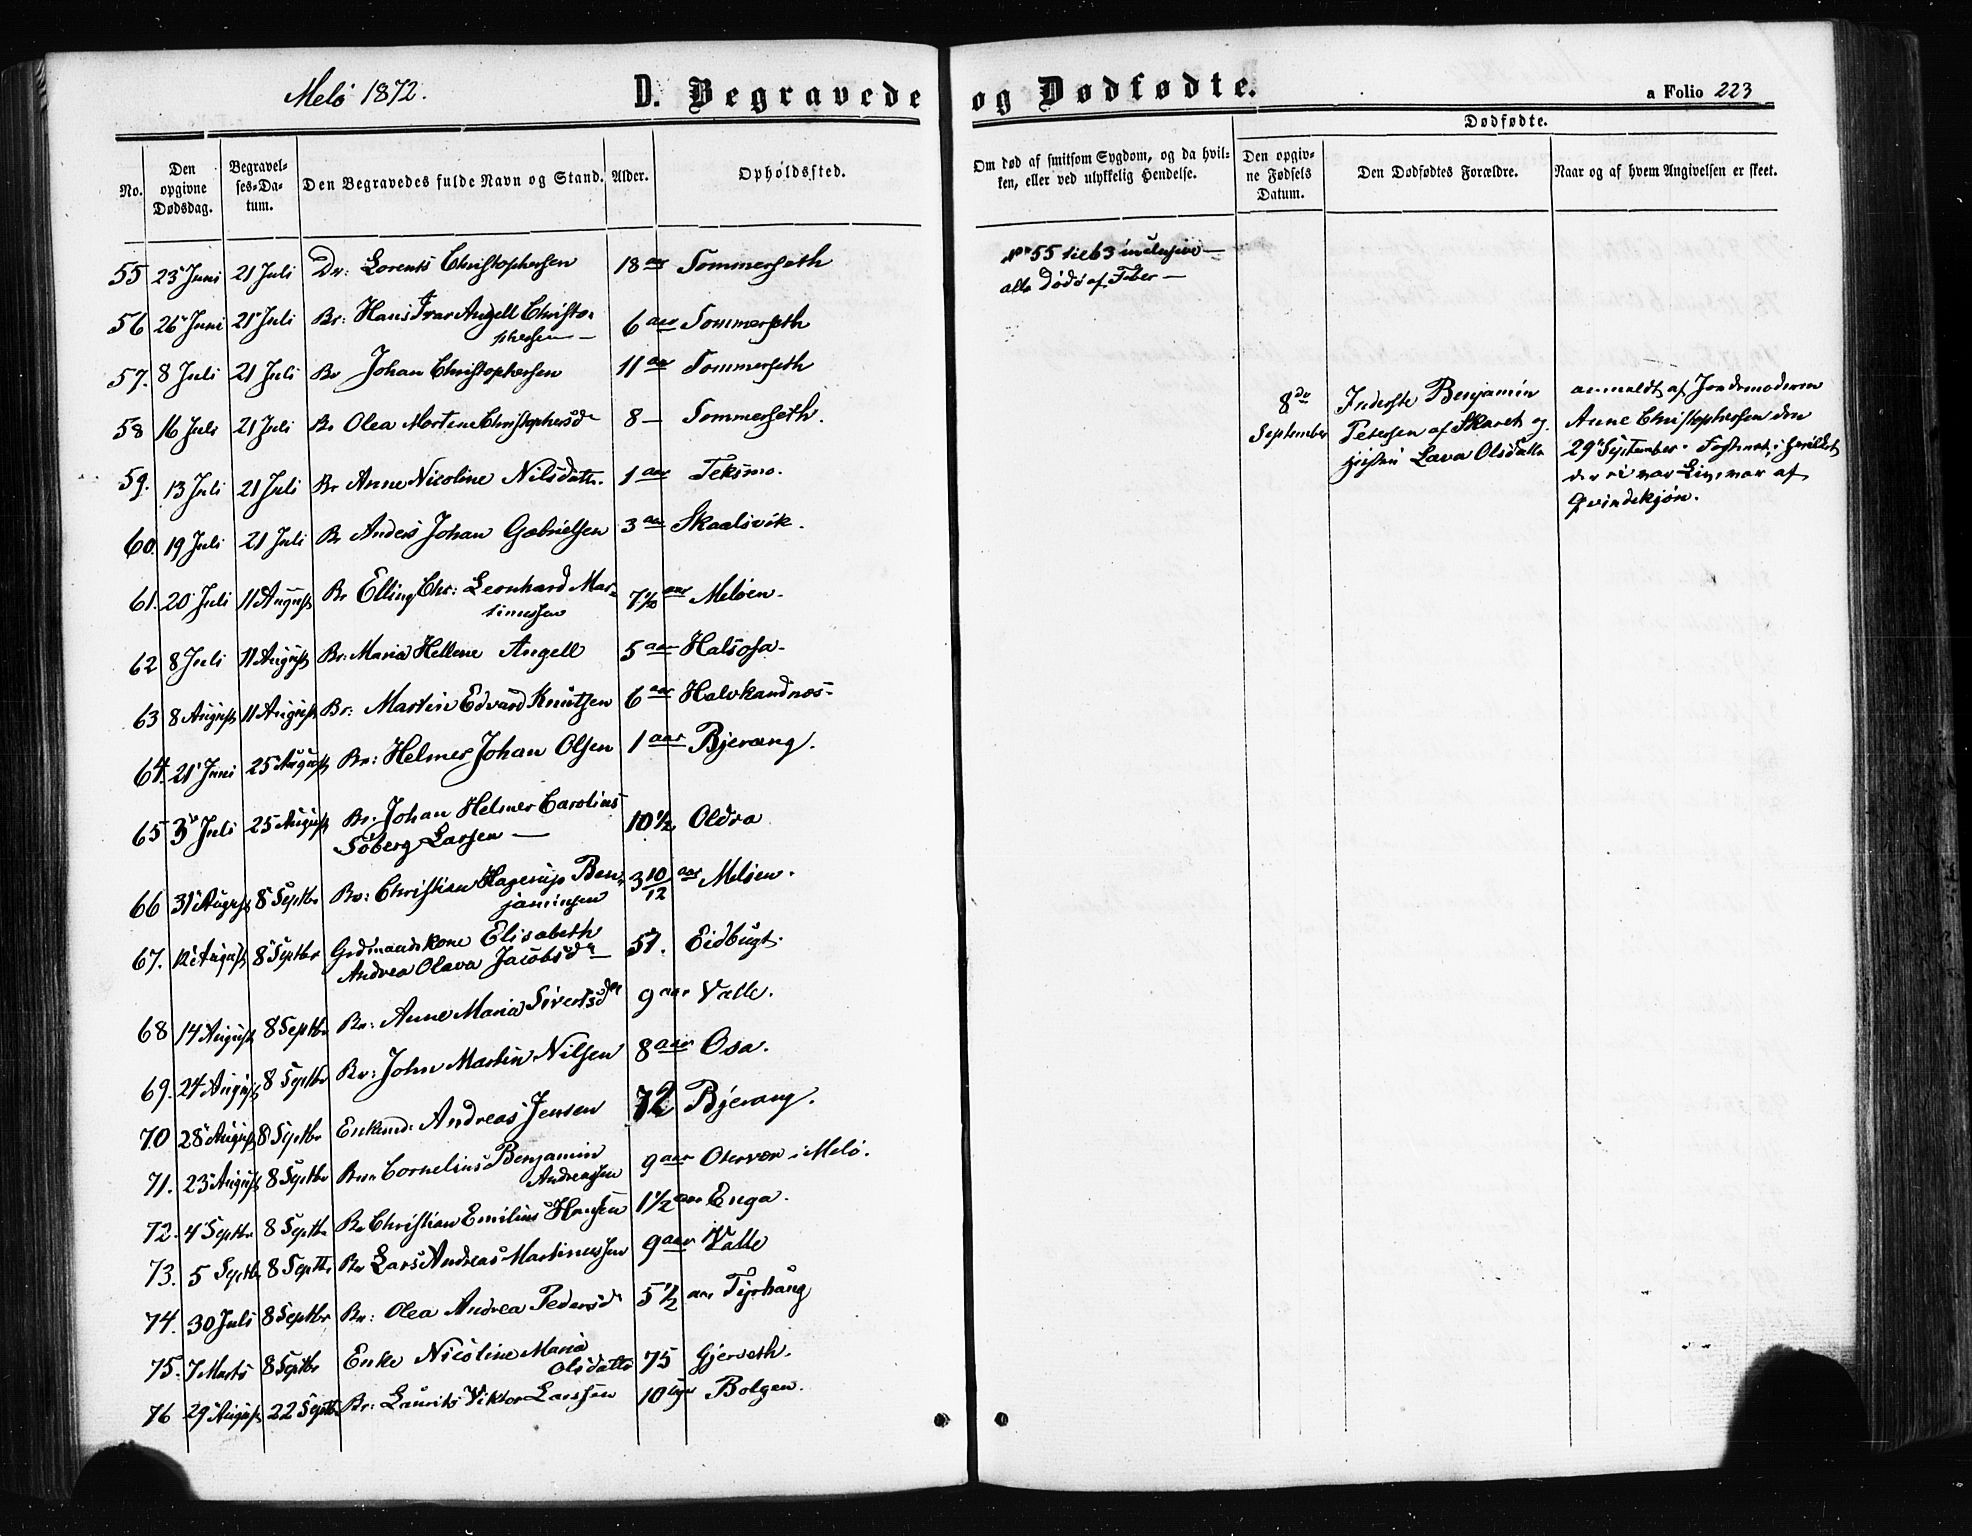 Melø 1872.
D. Begravede
og Dødfødte.
a Folio 223
No.
Den opgivne Dødsdag.
Begravelses-Datum.
Den Begravedes fulde Navn og Stand.
Alder.
Opholdssted.
Om død af smitsom Sygdom, og da hvilken, eller ved ulykkelig Hendelse.
Dødfødte.
Den opgivne Fødsels Datum.
Den Dødfødtes Forældre.
Naar og af hvem Angivelsen er skeet.
55 23 Juni 21 Juli Dr: Lorents Christophersen 18 aar Sommerseth
56 26 Juni 21 Juli Br: Hans Ivar Angell Christo-
phersen 6 aar Sommerseth
57. 8 Juli 21 Juli Br Johan Christophersen 11 aar Sommerseth
58 16 Juli 21 Juli Br Olea Martine Christophersdr 8 — Sommerseth.
59. 13 Juli 21 Juli Br Anne Nicoline Nilsdatter. 1 aar Teksmo.
60. 19 Juli 21 Juli Br Anders Johan Gabrielsen 3 aar Skaalsvik.
61. 20 Juli 11 August Br Elling Chr: Leonhard Mar-
tinussen 7 aar Meløen.
62 8 Juli 11 August Br: Maria Hellene Angell 5 aar Halsosa.
63 8 August 11 August Br: Martin Edvard Knutsen 6 aar Halvkandnæs.
64. 21 Juni 25 August Br: Helmer Johan Olsen 1 aar Bjerang.
65 3 Juli 25 August Br. Johan Helmer Carolius
Söberg Larsen — 10 1/2 Oldra
66 31 August 8 Septbr Br: Christian Hagerup Ben-
jaminsen 3 10/12 aar Meløen.
67. 12 August 8 Septbr Grdmandskone Elisabeth
Andrea Olava Jacobsdr 57. Eidbugt.
68 14 August 8 Septbr Br: Anne Maria Sivertsdr 9 aar Valle.
69. 24 August 8 Septbr Br: John Martin Nilsen 8 aar Osa.
70 28 August 8 Septbr Enkemd: Andreas Jensen 72 Bjerang.
71. 23 August 8 Septbr Brn Cornelius Benjamin
Andreassen 9 aar Otervær i Melø.
72. 4 Septbr 8 Septbr Br Christian Emilius Hansen 1 1/2 aar Enga.
73. 5 Septbr 8 Septbr Br Lars Andreas Martinussen 9 aar Valle
74. 30 Juli 8 Septbr Br: Olea Andrea Pedersdr 5 1/2 aar Fyrhaug
75. 7 Marts 8 Septbr Enke Nicoline Maria
Olsdatter 75 Gjerseth.
76 29 August 22 Septbr Br: Laurits Viktor Larssen 10 Bolgen.
No 55 til 63 inclusive —
alle døde af Feber —
8de
September
Inderste Benjamin
Petersen af Skaret og
Lava Olsdatter
anmeldt af Jordemoderen
Anne Christophersen den
29 September. Fosteret, i hvilket
der ei var Liv, var af
Qvindekjøn.